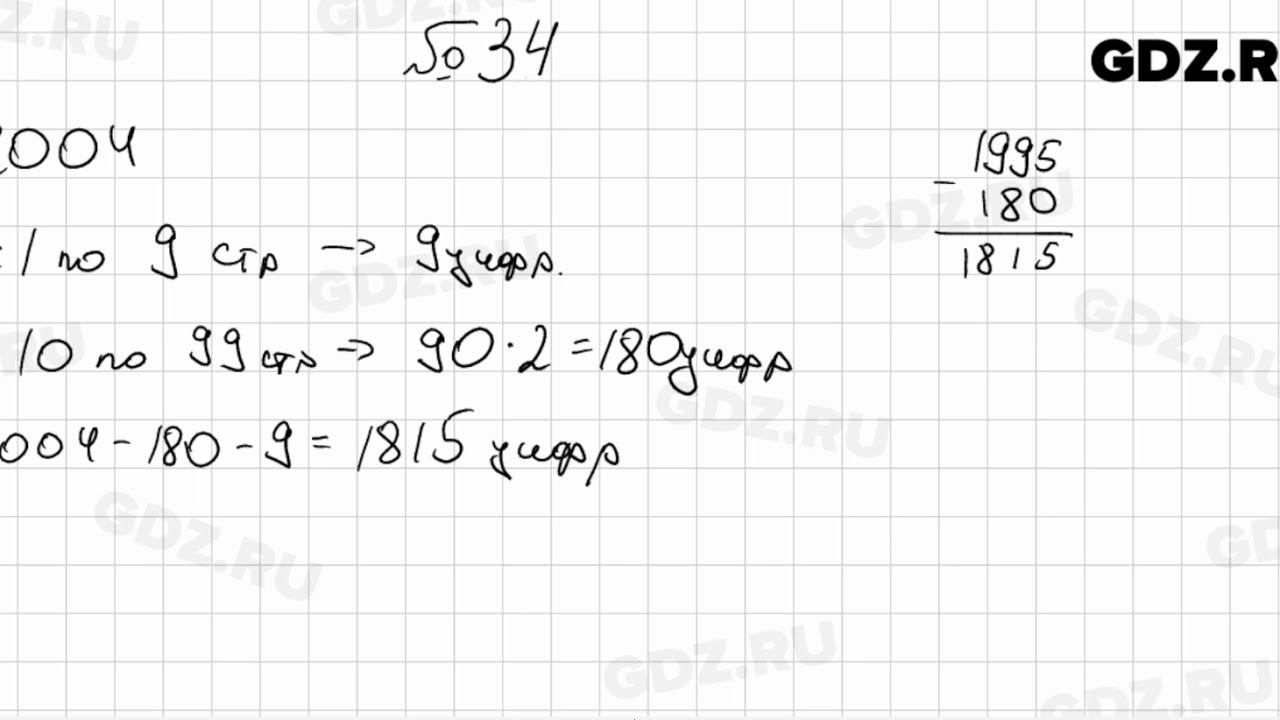 № 34
GDZ.R
2004
1995
- 180
1815
: 1 по 9 стр → 9 цифр.
10 по 99 стр → 90 · 2 = 180 цифр
004 - 180 - 9 = 1815 цифр
GDZ.RU
GDZ.RU
GDZ.RU
GDZ.RU
GDZ.RU
GDZ.RU
GDZ.RU
GDZ.RU
GDZ.RU